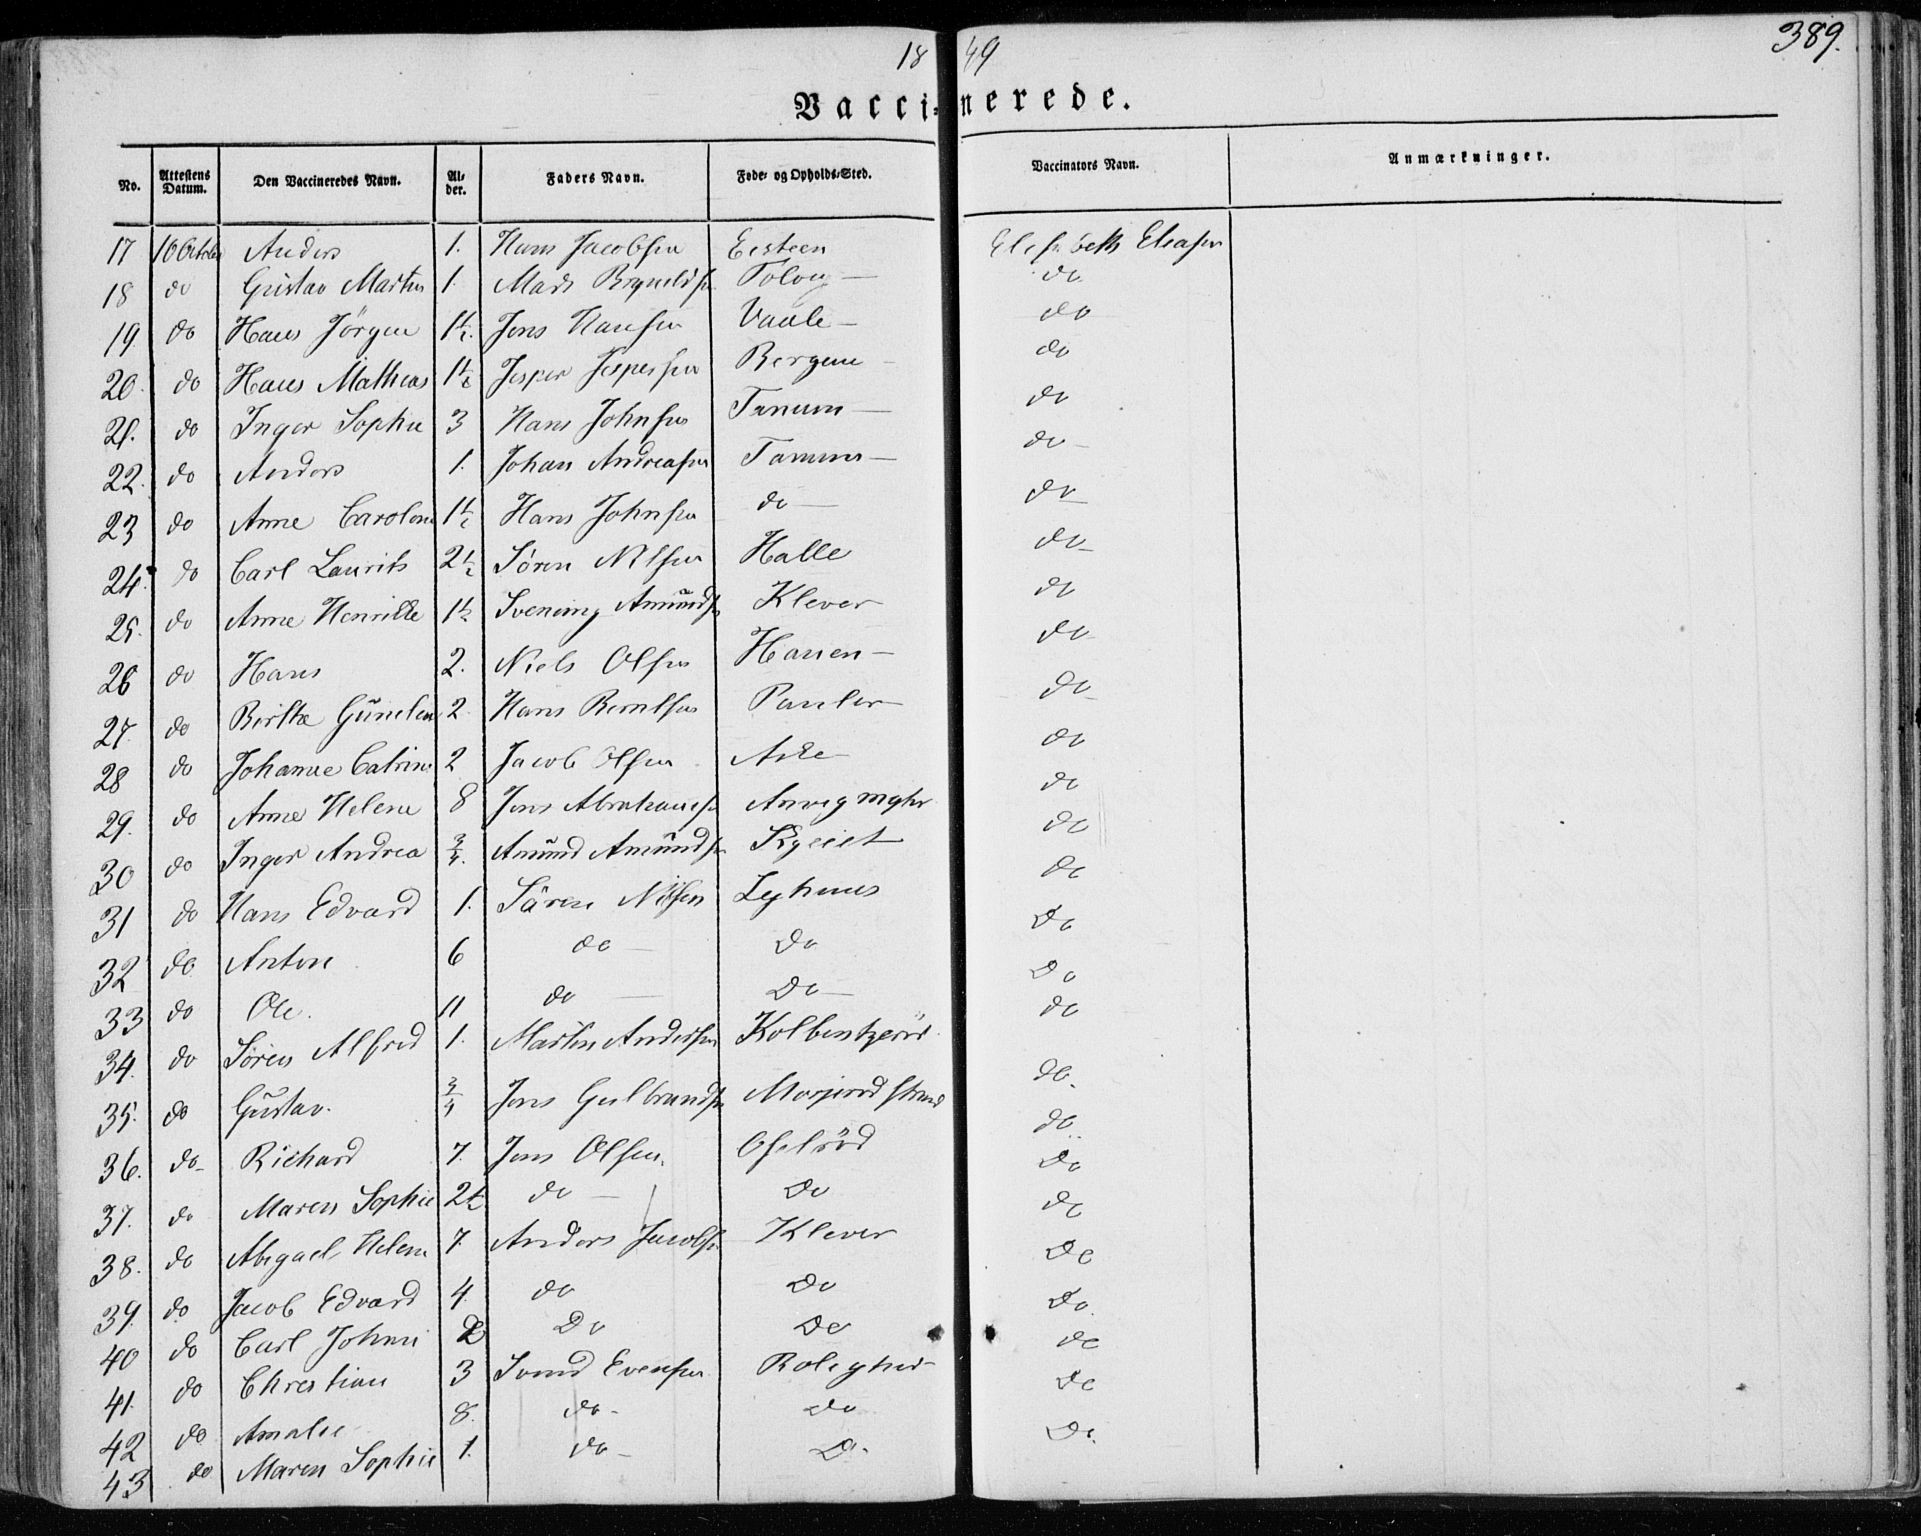 1849
389.
Vaccinerede.
No. Attestens Datum. Den Vaccineredes Navn. Alder. Faders Navn. Føde- og Opholds-Sted. Vaccinators Navn. Anmærkninger.
17 16 October Anders 1. Hans Jacobsen Eesteen Elisabeth Eliasen
18 do Gustav Martin 1. Mads do
19 do Hans Jörgen 1½. Jens Hansen Vaale do
20. do Hans Mathias 1½ Jesper Jespersen Bergene do
21. do Inger Sophie 3 Hans Johnsen Tanum do
22. do Anders 1. Johan Andreasen Tanum do
23 do Anne Caroline 1½ Hans Johnsen do do
24. do Carl Laurits 2½ Sören Nilsen Halle do
25. do Anne Henrikke 1½ Svening Amunds Klever do
26 do Hans 2. Niels Olsen Hanen do
27. do Birthe 2. Hans Berntsen Pauler do
28 do Johanne Catrine 2 Jacob Olsen Aske do
29. do Anne Helene 8 Jens Abrahams do
30 do Inger Andrea ¾. Amund Amunds do
31 do Hans Edvard 1. Sören Nilsen do
32 do Anton 6 do do do
33 do Ole. 11 do do do
34. do Sören Alfred 1. Martin Andersen do
35. do Gustav. ¾ Jens Gulbrands do.
36. do Richard 7. Jens Olsen. do
37. do Maren Sophie 2½ do do do
38. do Abigael Helene 7. Anders Jacobs Klever do
39. do Jacob Edvard 4. do do do
40 do Carl Johan 2 do do do.
41. do Christian 3 Svend Evensen Rolighed do
42 do Amalie 8. do do do
43 do Maren Sophie 1. do do. do.